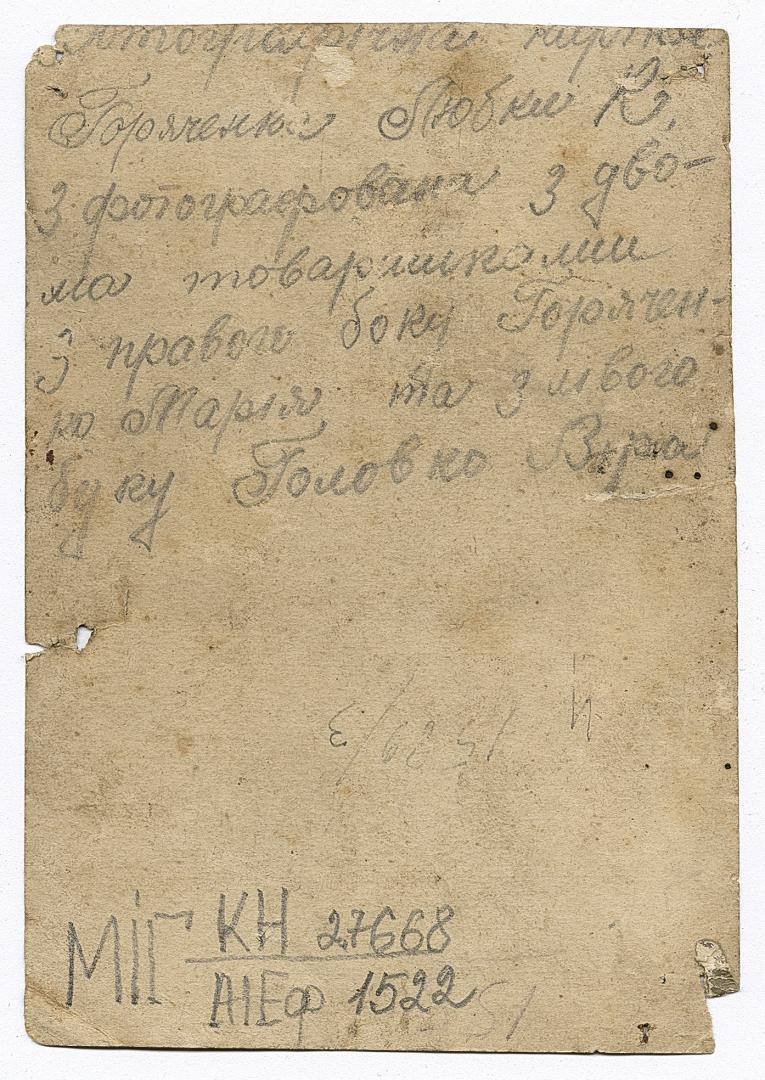 Фотографична картка
Горяченко Любки К,
З фотографована з дво-
ма товаришками
З правого боку Горячен-
ко Марія та з лівого
буку Головко Віра
МІГ КН 27668
АІЕФ 1522